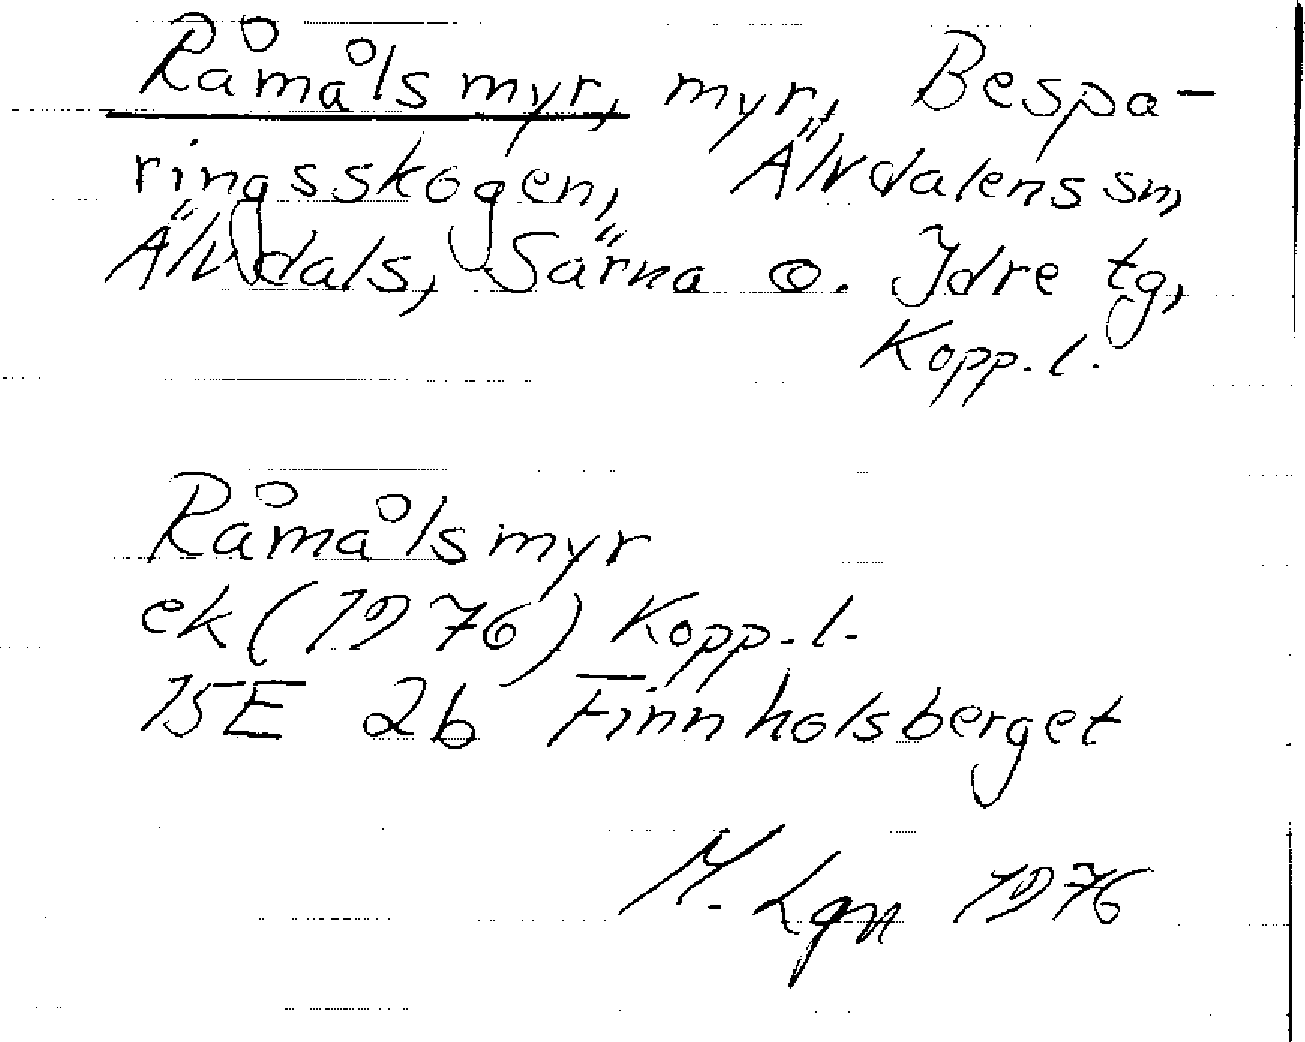 Råmålsmyr, myr, Bespa-
ringsskogen, Älvdalens sn,
Älvdals, Särna o. Idre tg,
Kopp. l.
Råmålsmyr
ek (1976) Kopp. l.
15E 2b Finnholsberget
M. Lgn 1976